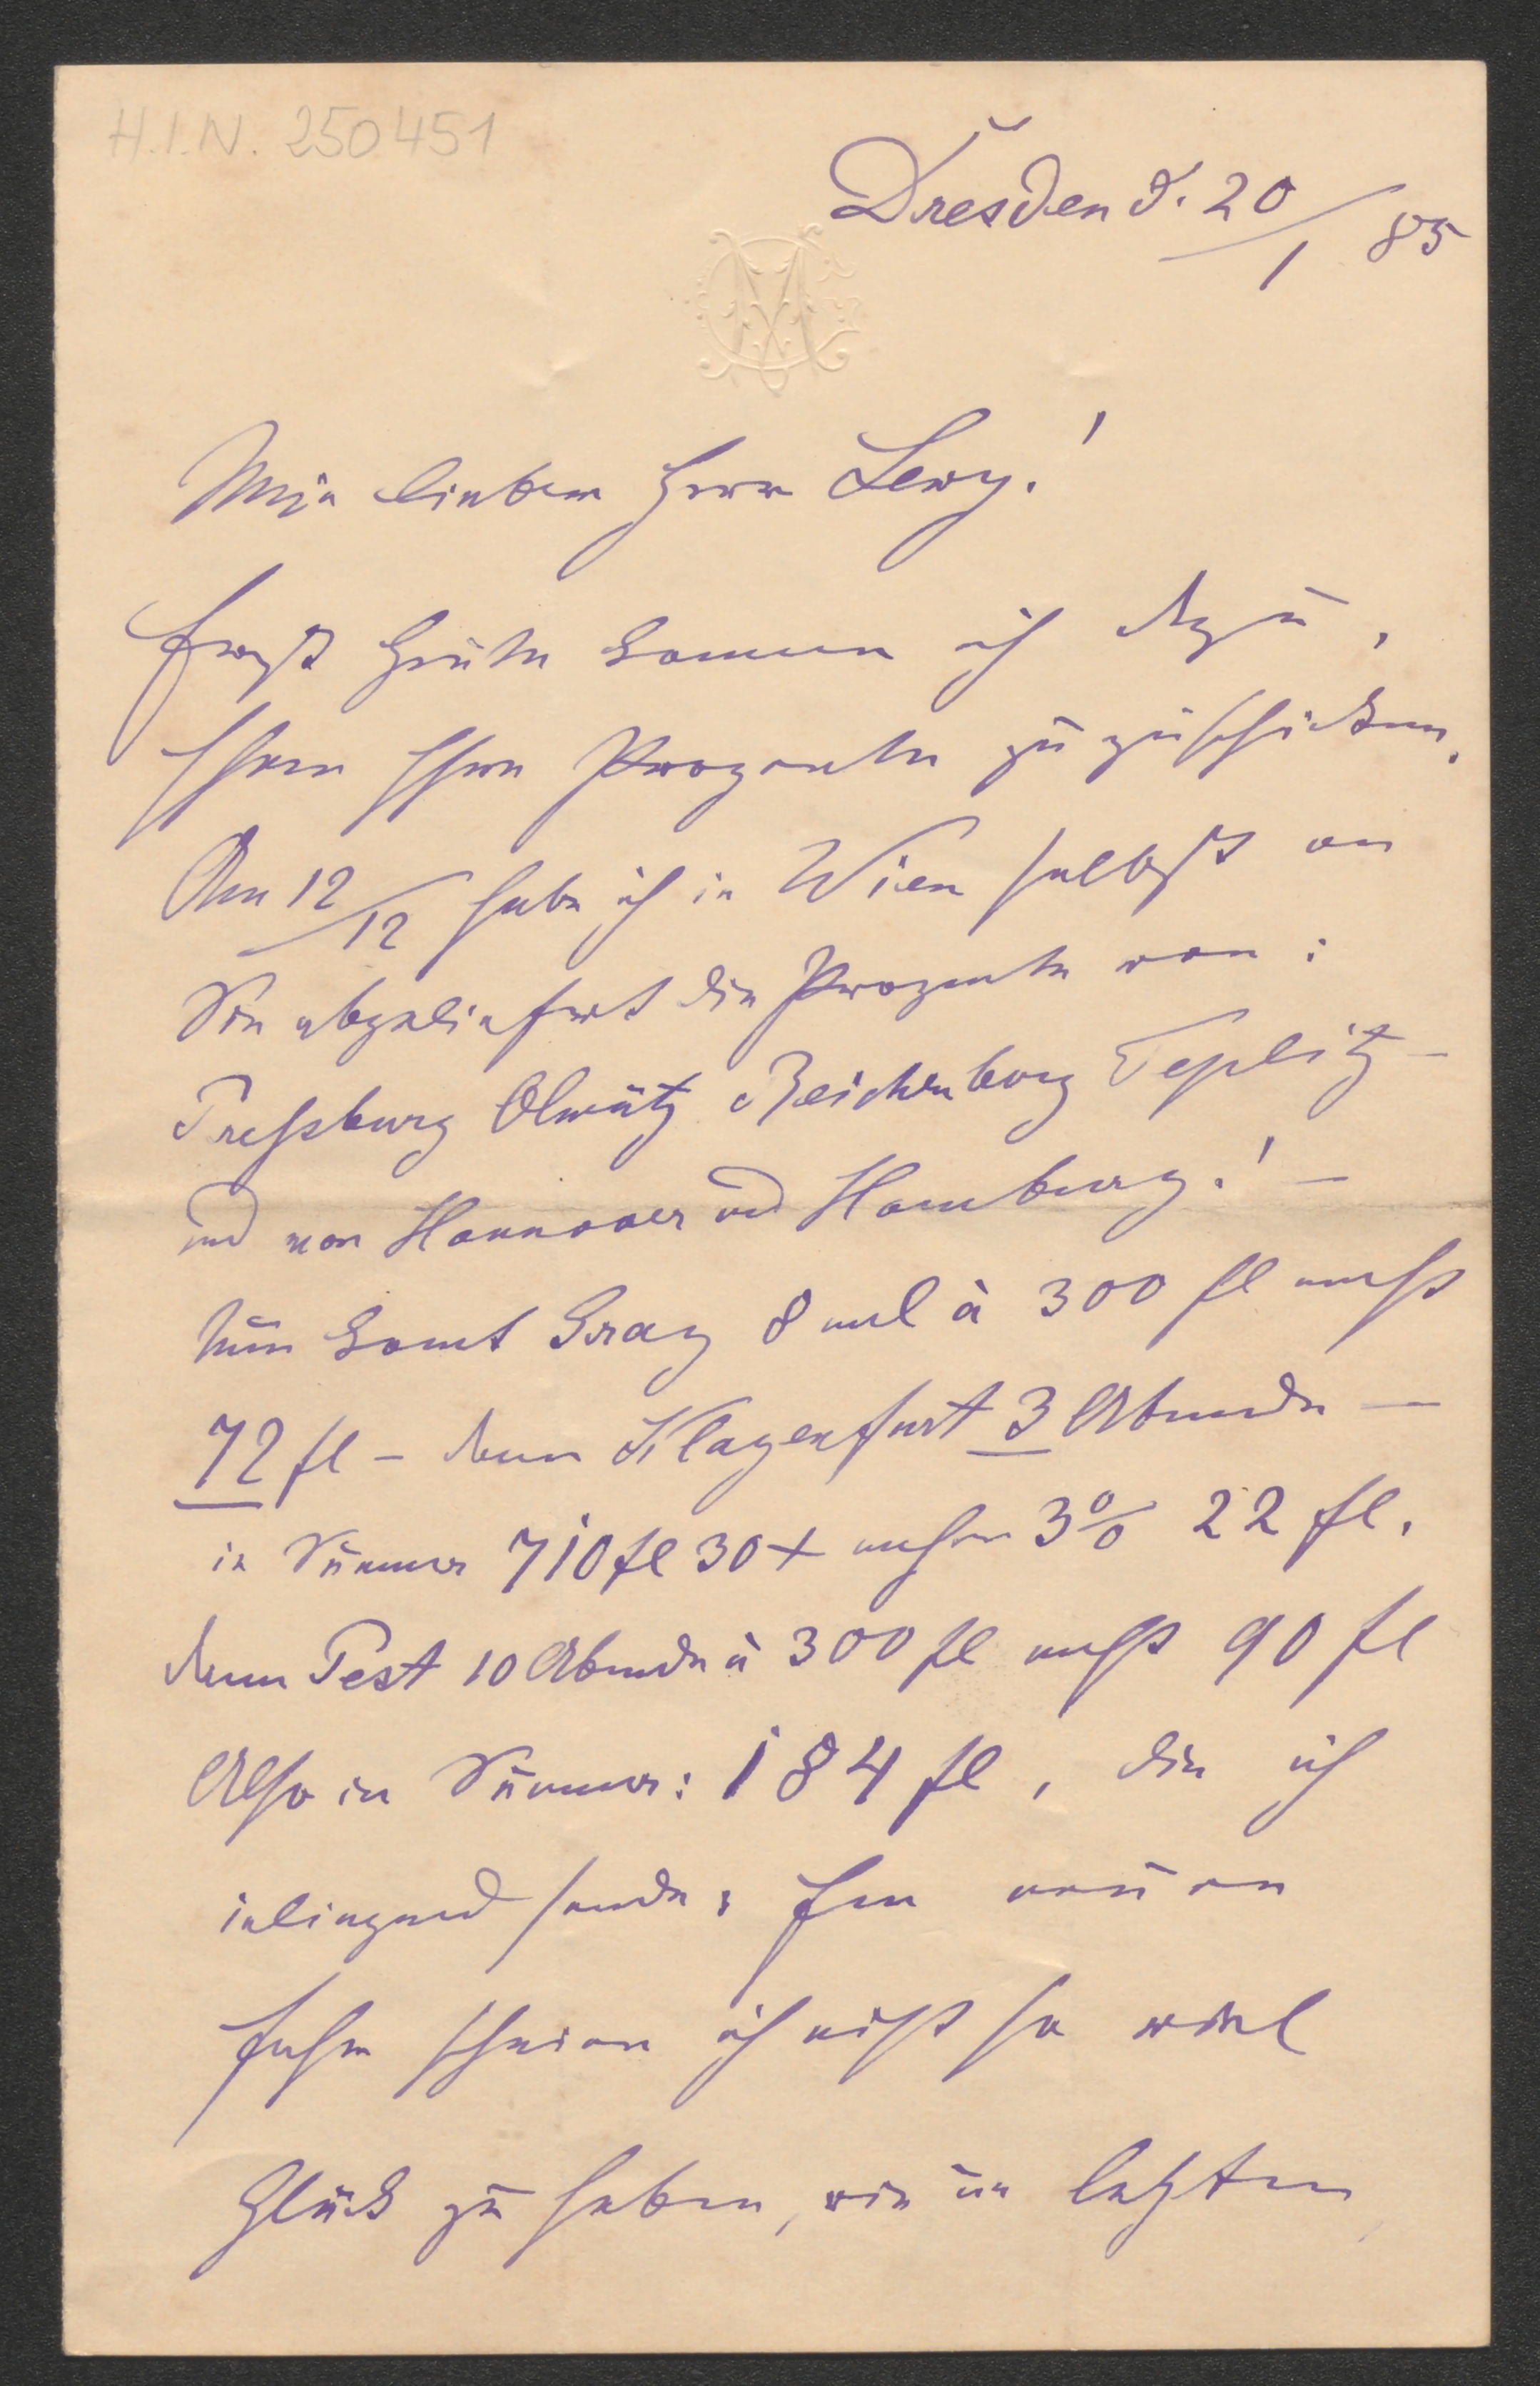 H.I.N. 250451
Dresden d. 20/1 85
Mein lieber Herr Lewy!
Erst heute komme ich dazu,
Ihnen Ihre Prozente zu zuschicken.
Am 12/12 habe ich in Wien selbst an
Sie abgeliefert die Prozente von:
Preßburg Olmütz Reichenberg Teplitz –
und von Hannover und Hamburg! –
Nun komt Graz 8 mal à 300 fl macht
72 fl – dann Klagenfurt 3 Abende –
in Summa 710 fl 30 x macht 3% 22 fl.
dann Pest 10 Abende à 300 fl macht 90 fl
Also in Summa: 184 fl, die ich
inliegend sende. Im neuen
Jahr scheine ich nicht so viel
Glück zu haben, wie im letzten